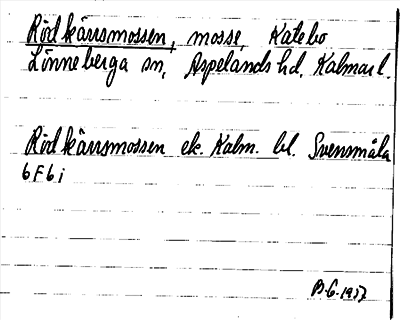 Rödkärrsmossen, mosse, Katebo
Lönneberga sn, Aspelands hd, Kalmar l.
Rödkärrsmossen ek. Kalm. bl. Svensmåla
6F6i